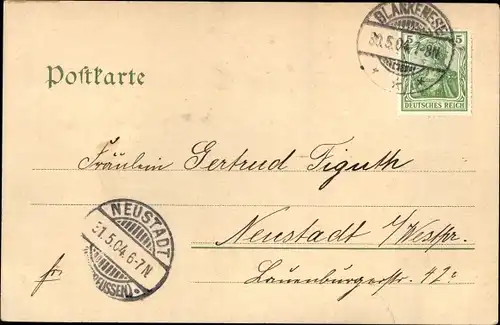 BLANKENESE
30.5.04. 7-8N.
5 5
DEUTSCHES REICH
Postkarte
Fräulein Gertrud Tiguth
NEUSTADT
31.5.04. 6-7N.
Neustadt i/Westpr.
fr.
Lauenburgerstr. 42